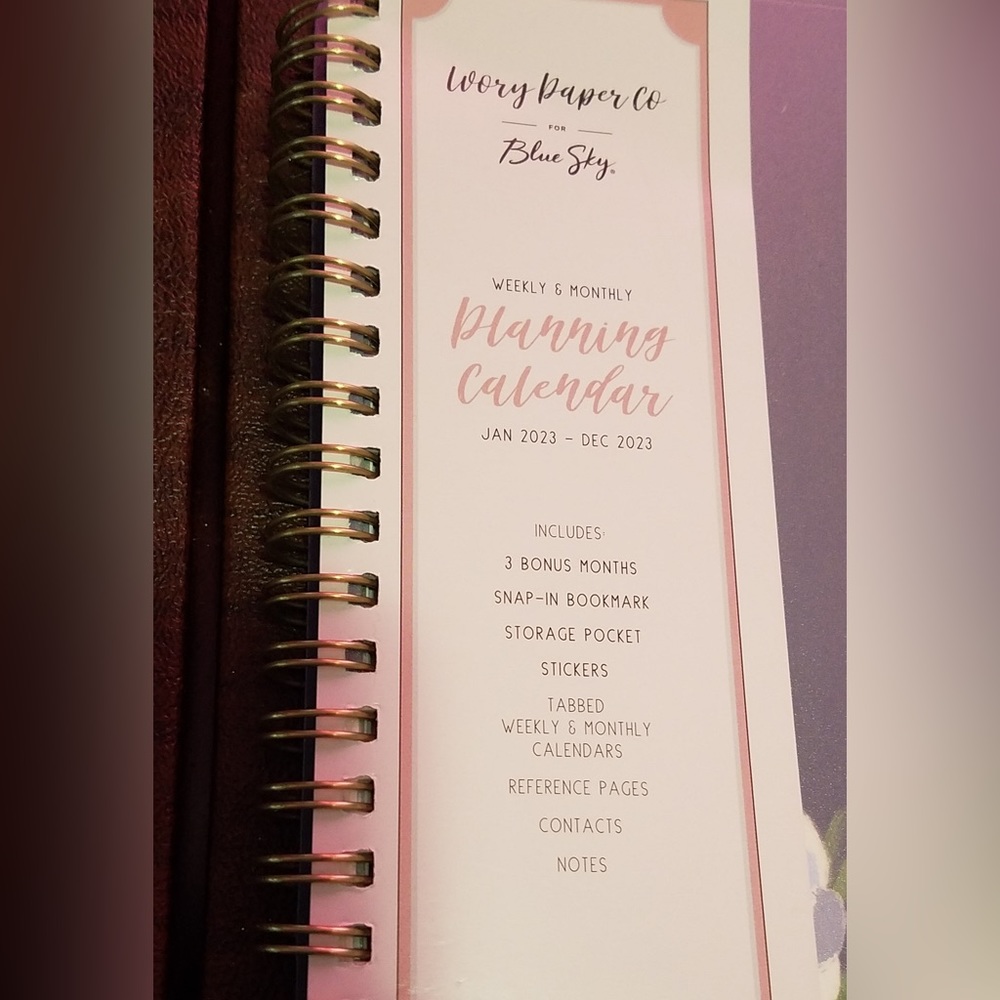 Ivory Paper Co
FOR
Blue Sky®
WEEKLY & MONTHLY
Planning
Calendar
JAN 2023 - DEC 2023
INCLUDES:
3 BONUS MONTHS
SNAP-IN BOOKMARK
STORAGE POCKET
STICKERS
TABBED
WEEKLY & MONTHLY
CALENDARS
REFERENCE PAGES
CONTACTS
NOTES